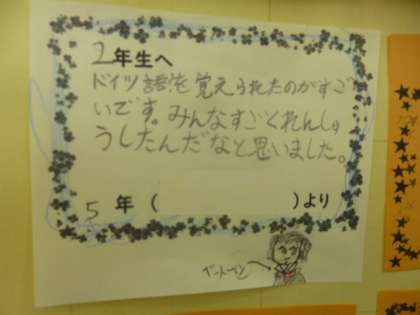 2年生へ
ドイツ語を覚えられたのがすご
いです。みんなすごくれんしゅ
うしたんだなと思いました。
5年( )より
ベートーベン